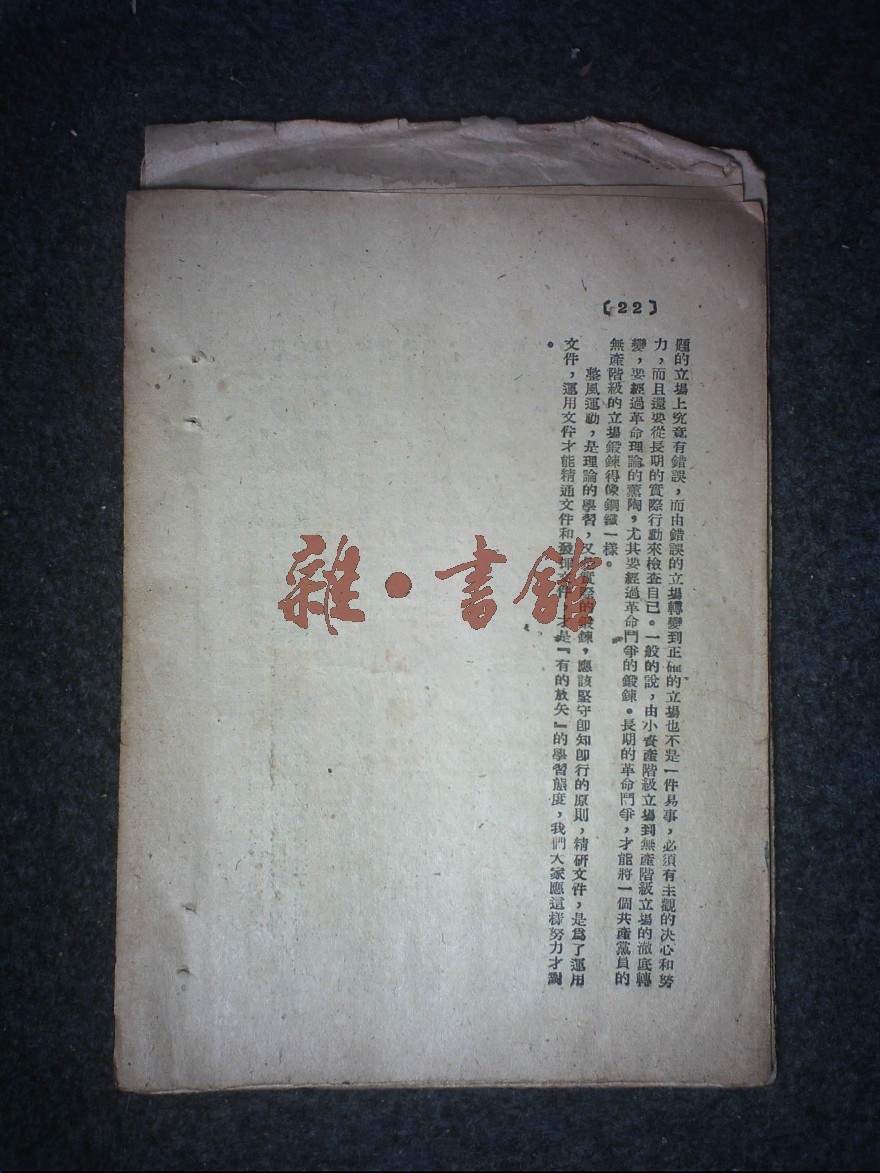 〔22〕
題的立場上究竟有錯誤，而由錯誤的立場轉變到正確的立場也不是一件易事，必須有主觀的决心和努
力，而且還要從長期的實際行動來檢查自己。一般的說，由小資產階級立場到無產階級立場的澈底轉
變，要經過革命理論的薰陶，尤其要經過革命鬥爭的鍛鍊。長期的革命鬥爭，才能將一個共產黨員的
無產階級的立場鍛鍊得像鋼鐵一樣。
整風運動，是理論的學習，又是實際的鍛鍊，應該堅守卽知卽行的原則，精研文件，是爲了運用
文件，運用文件才能精通文件和發揮文件，才是『有的放矢』的學習態度，我們大家應這樣努力才對
。
雜·書館